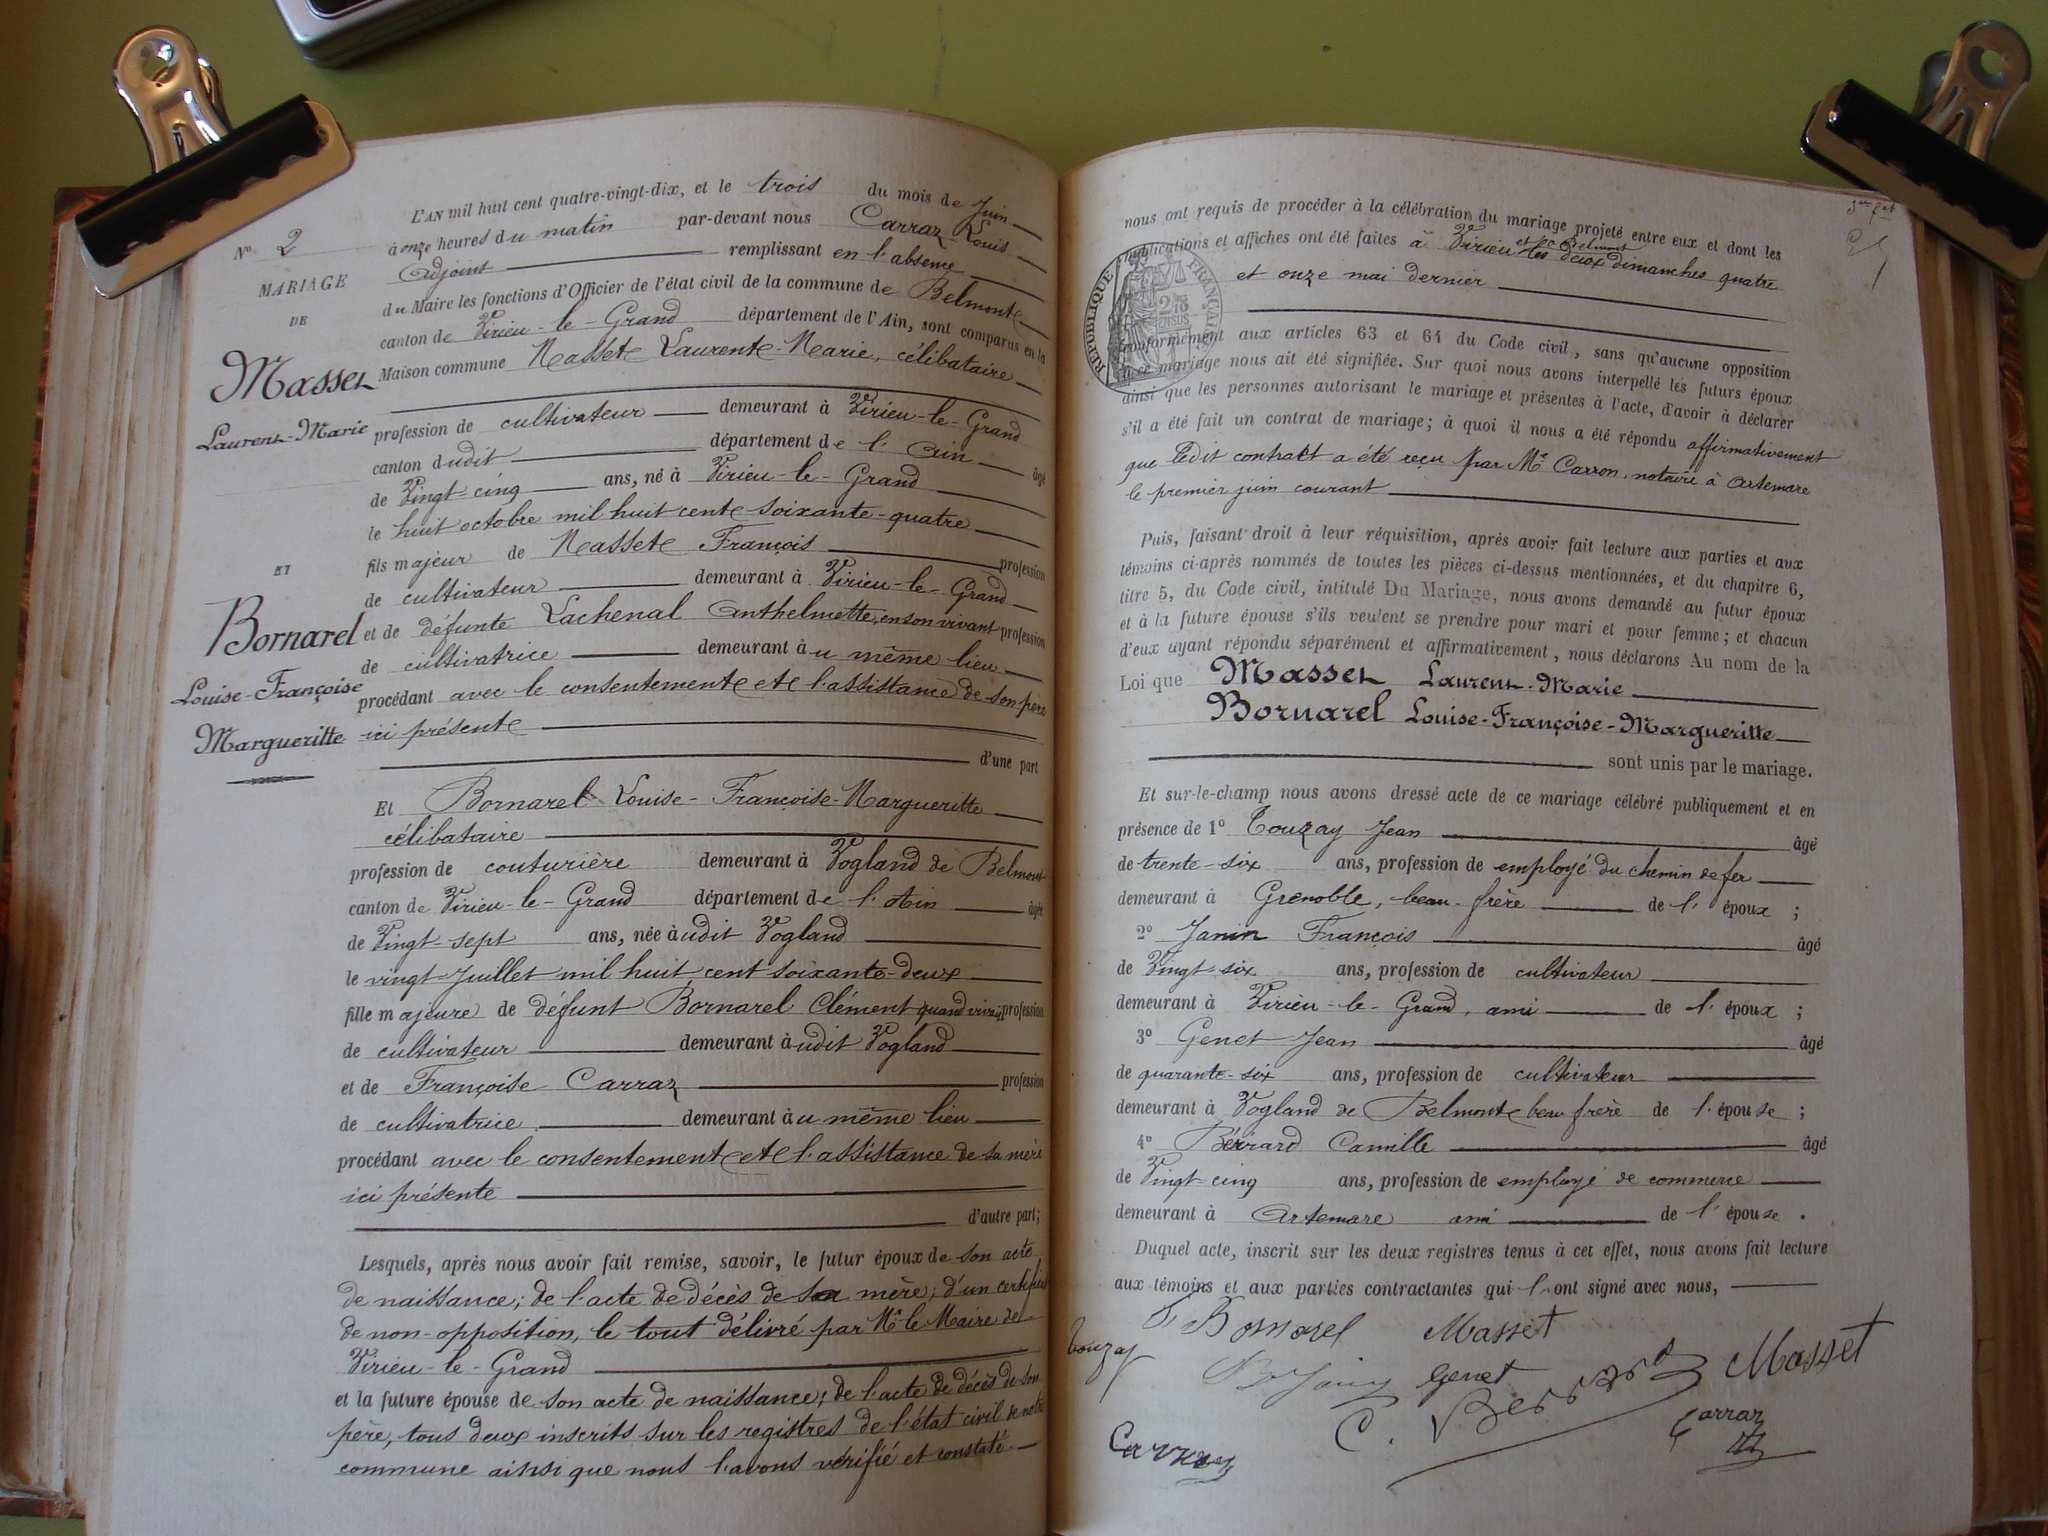 N° 2
MARIAGE
DE
Masset
Laurent-Marie
ET
Bornarel
Louise-Françoise
Margueritte
L'AN mil huit cent quatre-vingt-dix, et le trois du mois de Juin
à onze heures du matin par-devant nous Carraz Louis
Adjoint remplissant en l'absence
du Maire les fonctions d'Officier de l'état civil de la commune de Belmont
canton de Virieu-le-Grand département de l'Ain, sont comparus en la
Maison commune Masset Laurent-Marie, célibataire
profession de cultivateur demeurant à Virieu-le-Grand
canton dudit département de l'Ain âgé
de Vingt-cinq ans, né à Virieu-le-Grand
le huit octobre mil huit cent soixante-quatre
fils majeur de Masset François profession
de cultivateur demeurant à Virieu-le-Grand
et de défunte Lachenal Anthelmette, en son vivant profession
de cultivatrice demeurant au même lieu
procédant avec le consentement et l'assistance de son père
ici présent
d'une part
Et Bornarel Louise-Françoise-Margueritte
célibataire
profession de couturière demeurant à Vogland de Belmont
canton de Virieu-le-Grand département de l'Ain âgée
de Vingt-sept ans, née audit Vogland
le vingt-Juillet mil huit cent soixante-deux
fille majeure de défunt Bornarel Clément quand vivait profession
de cultivateur demeurant audit Vogland
et de Françoise Carraz profession
de cultivatrice demeurant au même lieu
procédant avec le consentement et l'assistance de sa mère
ici présente
d'autre part;
Lesquels, après nous avoir fait remise, savoir, le futur époux de son acte
de naissance; de l'acte de décès de sa mère; d'un certificat
de non-opposition, le tout délivré par Mr le Maire de
Virieu-le-Grand
et la future épouse de son acte de naissance; de l'acte de décès de son
père, tous deux inscrits sur les registres de l'état civil de notre
commune ainsi que nous l'avons vérifié et constaté
nous ont requis de procéder à la célébration du mariage projeté entre eux et dont les
et à Belmont
publications et affiches ont été faites à Virieu les deux dimanches quatre
et onze mai dernier
RÉPUBLIQUE FRANÇAISE
conformément aux articles 63 et 64 du Code civil, sans qu'aucune opposition
à ce mariage nous ait été signifiée. Sur quoi nous avons interpellé les futurs époux
ainsi que les personnes autorisant le mariage et présentes à l'acte, d'avoir à déclarer
s'il a été fait un contrat de mariage; à quoi il nous a été répondu affirmativement
que ledit contrat a été reçu par Me Carron, notaire à Artemare
le premier juin courant
Puis, faisant droit à leur réquisition, après avoir fait lecture aux parties et aux
témoins ci-après nommés de toutes les pièces ci-dessus mentionnées, et du chapitre 6,
titre 5, du Code civil, intitulé Du Mariage, nous avons demandé au futur époux
et à la future épouse s'ils veulent se prendre pour mari et pour femme; et chacun
d'eux ayant répondu séparément et affirmativement, nous déclarons Au nom de la
Loi que Masset Laurent-Marie
Bornarel Louise-Françoise-Margueritte
sont unis par le mariage.
Et sur-le-champ nous avons dressé acte de ce mariage célébré publiquement et en
présence de 1° Touzay Jean âgé
de trente-six ans, profession de employé du chemin de fer
demeurant à Grenoble, beau-frère de l'époux ;
2° Janin François âgé
de Vingt-six ans, profession de cultivateur
demeurant à Virieu-le-Grand, ami de l'époux ;
3° Genet Jean âgé
de quarante-six ans, profession de cultivateur
demeurant à Vogland de Belmont beau frère de l'épouse ;
4° Bérrard Camille âgé
de Vingt-cinq ans, profession de employé de commerce
demeurant à Artemare ami de l'épouse .
Duquel acte, inscrit sur les deux registres tenus à cet effet, nous avons fait lecture
aux témoins et aux parties contractantes qui l'ont signé avec nous,
Bornarel Masset
Touzay
Genet Masset
C. Berrard
Carraz
Carraz